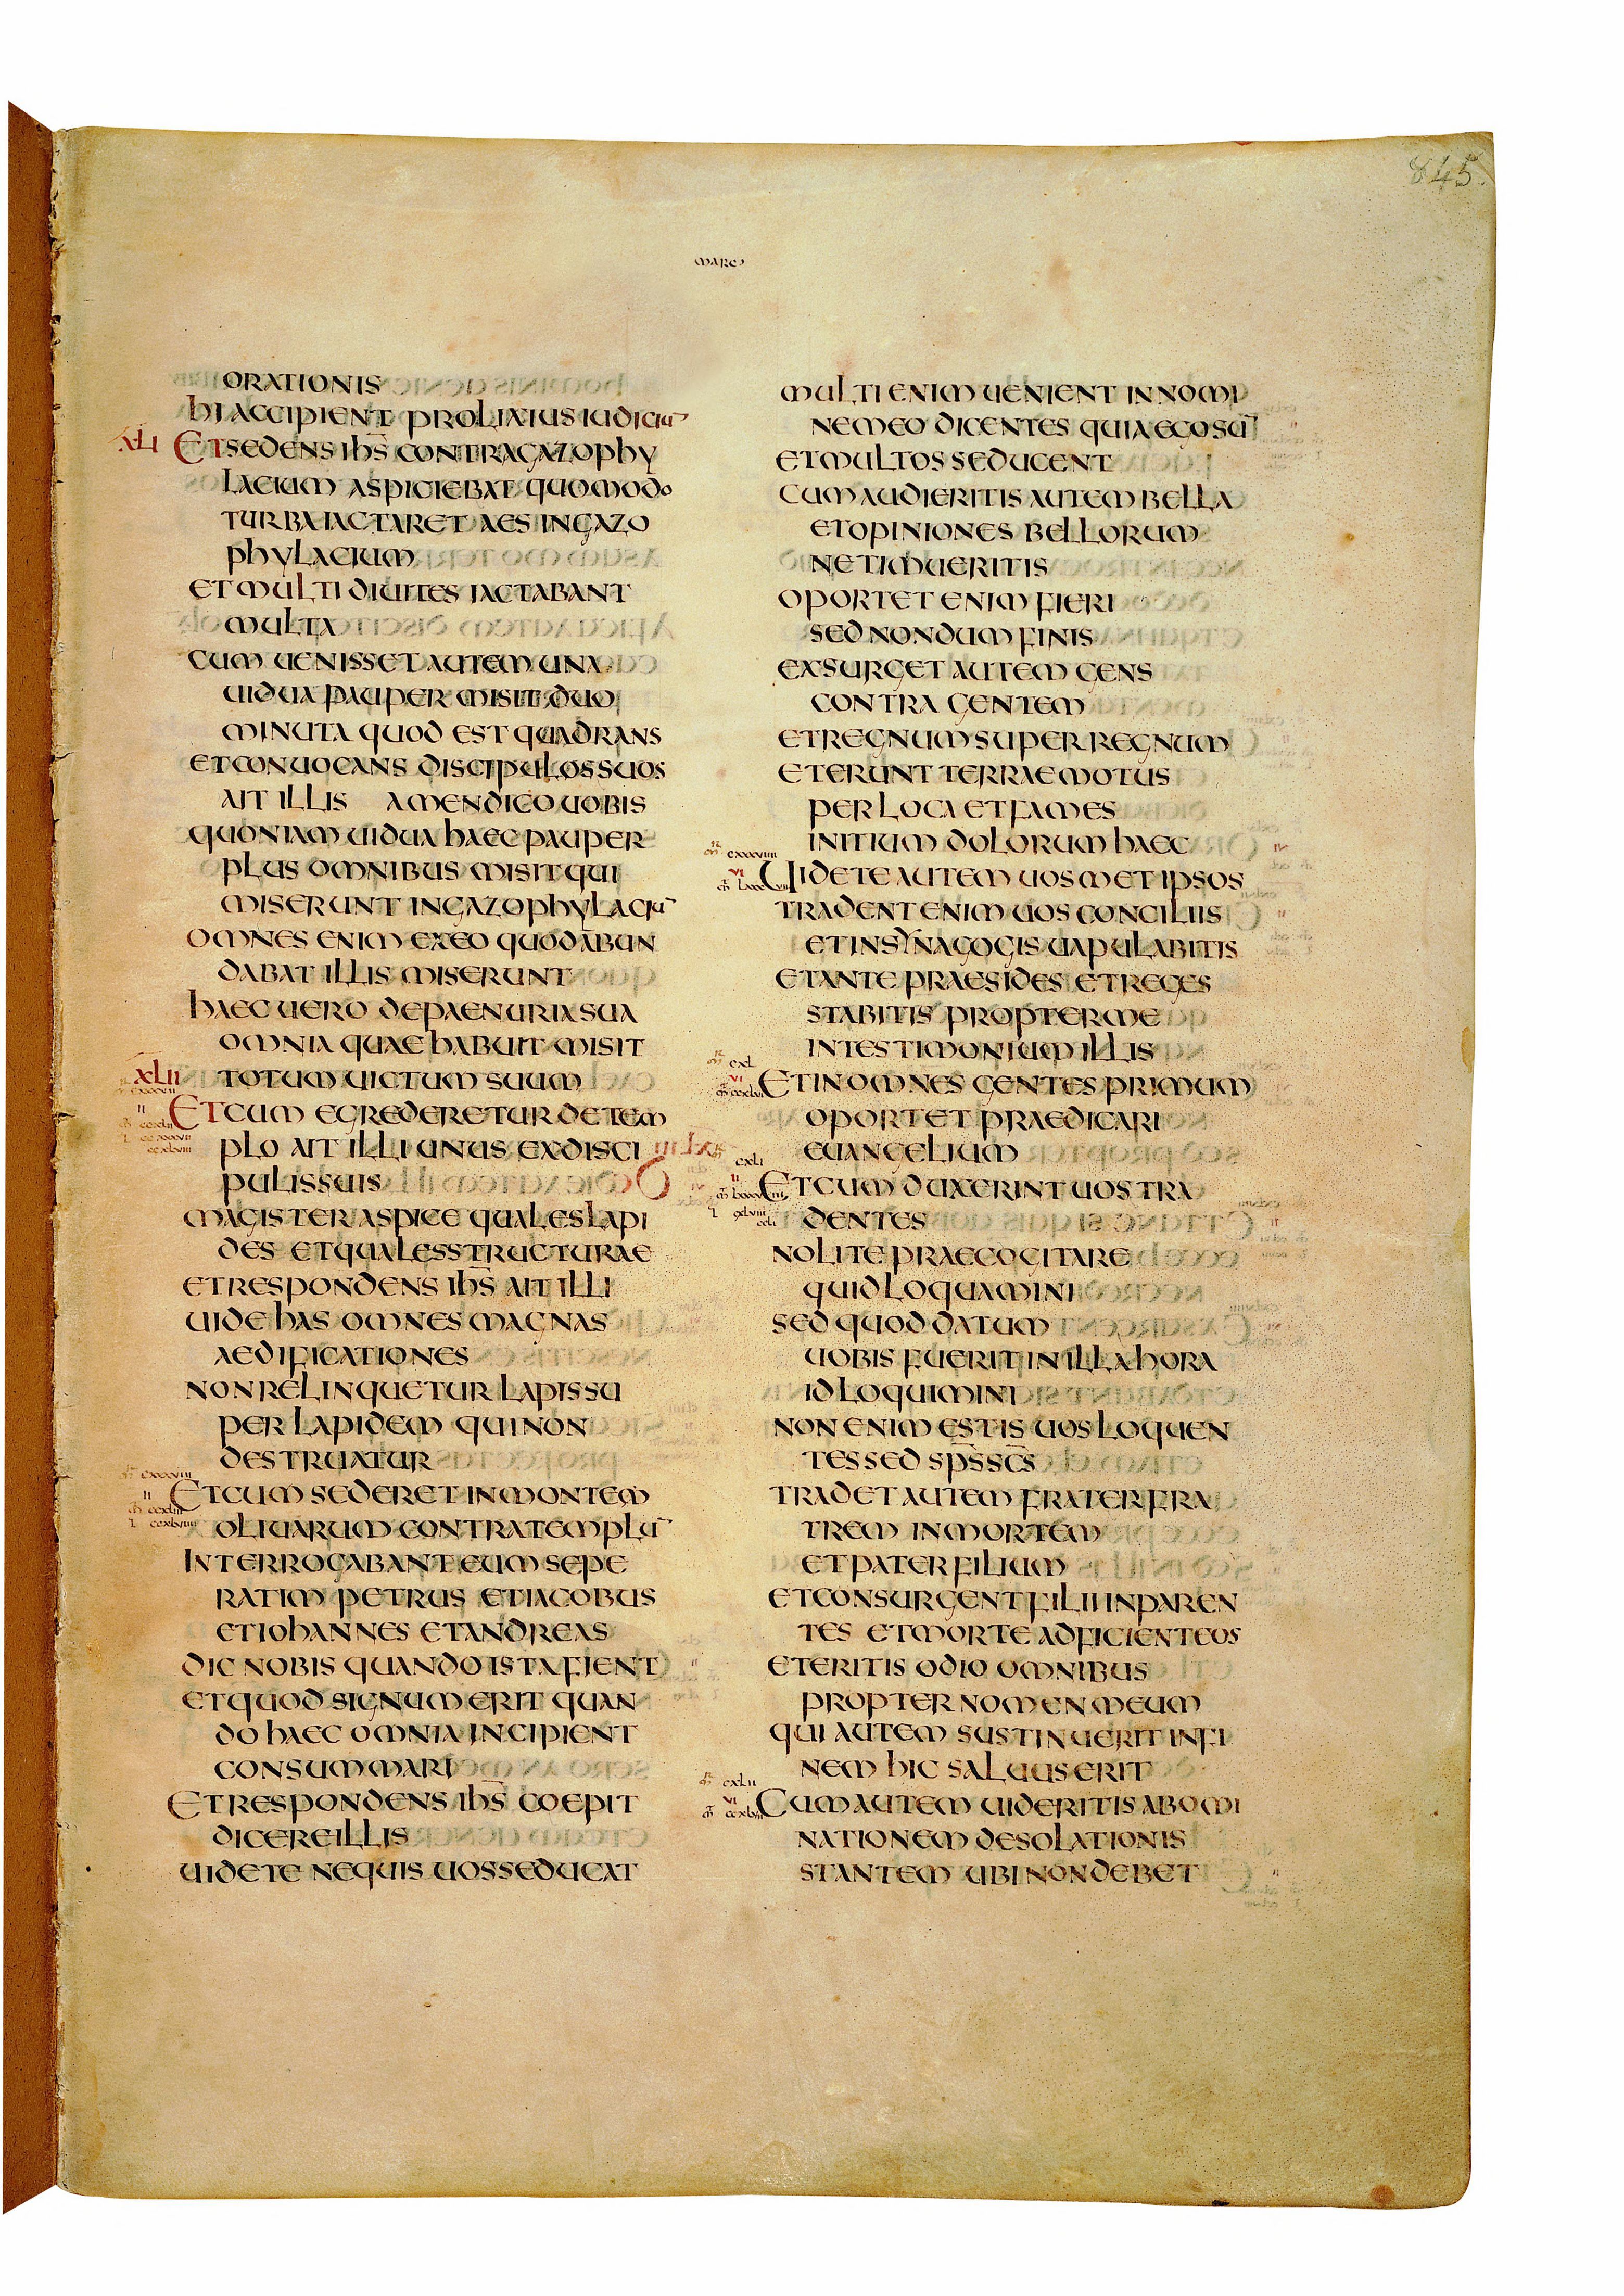 845.
MARC
ORATIONIS
HI ACCIPIENT PROLIXIUS IUDICIU̅
XLI
ET SEDENS IHS̅ CONTRA GAZOPHY
LACIUM ASPICIEBAT QUOMODO
TURBA IACTARET AES IN GAZO
PHYLACIUM
ET MULTI DIUITES IACTABANT
MULTA
CUM UENISSET AUTEM UNA
UIDUA PAUPER MISIT DUO
MINUTA QUOD EST QUADRANS
ET CONUOCANS DISCIPULOS SUOS
AIT ILLIS AMEN DICO UOBIS
QUONIAM UIDUA HAEC PAUPER
PLUS OMNIBUS MISIT QUI
MISERUNT IN GAZOPHYLACIU̅
OMNES ENIM EX EO QUOD ABUN
DABAT ILLIS MISERUNT
HAEC UERO DE PAENURIA SUA
OMNIA QUAE HABUIT MISIT
TOTUM UICTUM SUUM
XLII
CXXXVII
II
ET CUM EGREDERETUR DE TEM
PLO AIT ILLI UNUS EX DISCI
PULIS SUIS
MAGISTER ASPICE QUALES LAPI
DES ET QUALES STRUCTURAE
ET RESPONDENS IHS̅ AIT ILLI
UIDE HAS OMNES MAGNAS
AEDIFICATIONES
NON RELINQUETUR LAPIS SU
PER LAPIDEM QUI NON
DESTRUATUR
CXXXVIII
II
ET CUM SEDERET IN MONTEM
OLIUARUM CONTRA TEMPLU̅
INTERROGABANT EUM SEPE
RATIM PETRUS ET IACOBUS
ET IOHANNES ET ANDREAS
DIC NOBIS QUANDO ISTA FIENT
ET QUOD SIGNUM ERIT QUAN
DO HAEC OMNIA INCIPIENT
CONSUMMARI
ET RESPONDENS IHS̅ COEPIT
DICERE ILLIS
UIDETE NEQUIS UOS SEDUCAT
MULTI ENIM UENIENT IN NOMI
NE MEO DICENTES QUIA EGO SU̅
ET MULTOS SEDUCENT
CUM AUDIERITIS AUTEM BELLA
ET OPINIONES BELLORUM
NE TIMUERITIS
OPORTET ENIM FIERI
SED NONDUM FINIS
EXSURGET AUTEM GENS
CONTRA GENTEM
ET REGNUM SUPER REGNUM
ET ERUNT TERRAE MOTUS
PER LOCA ET FAMES
INITIUM DOLORUM HAEC
CXXXVIIII
VI
UIDETE AUTEM UOSMET IPSOS
TRADENT ENIM UOS CONCILIIS
ET IN SYNAGOGIS UAPULABITIS
ET ANTE PRAESIDES ET REGES
STABITIS PROPTER ME
IN TESTIMONIUM ILLIS
CXL
VI
ET IN OMNES GENTES PRIMUM
OPORTET PRAEDICARI
EUANGELIUM
CXLI
II
ET CUM DUXERINT UOS TRA
DENTES
NOLITE PRAECOGITARE
QUID LOQUAMINI
SED QUOD DATUM
UOBIS FUERIT IN ILLA HORA
ID LOQUIMINI
NON ENIM ESTIS UOS LOQUEN
TES SED SPS̅ SCS̅
TRADET AUTEM FRATER FRA
TREM IN MORTEM
ET PATER FILIUM
ET CONSURGENT FILII IN PAREN
TES ET MORTE ADFICIENT EOS
ET ERITIS ODIO OMNIBUS
PROPTER NOMEN MEUM
QUI AUTEM SUSTINUERIT IN FI
NEM HIC SALUUS ERIT
CXLII
VI
CUM AUTEM UIDERITIS ABOMI
NATIONEM DESOLATIONIS
STANTEM UBI NON DEBET